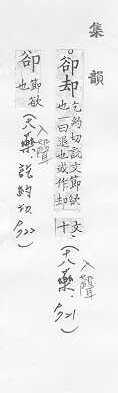 集韻
。卻却乞約切說文節欲也一曰退也或作却文十(入聲十八藥.721)
卻節欲也(入聲十八藥.說約切722)